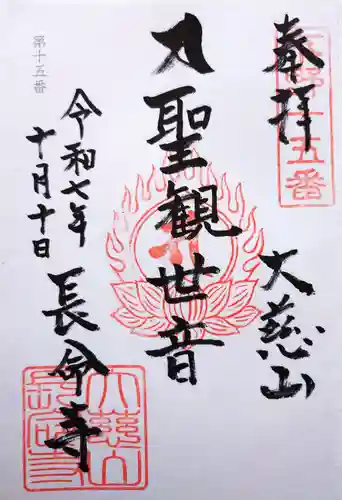 奉拝
大慈山
聖観世音
第十五番
令和七年
十月十日
長命寺
十五番